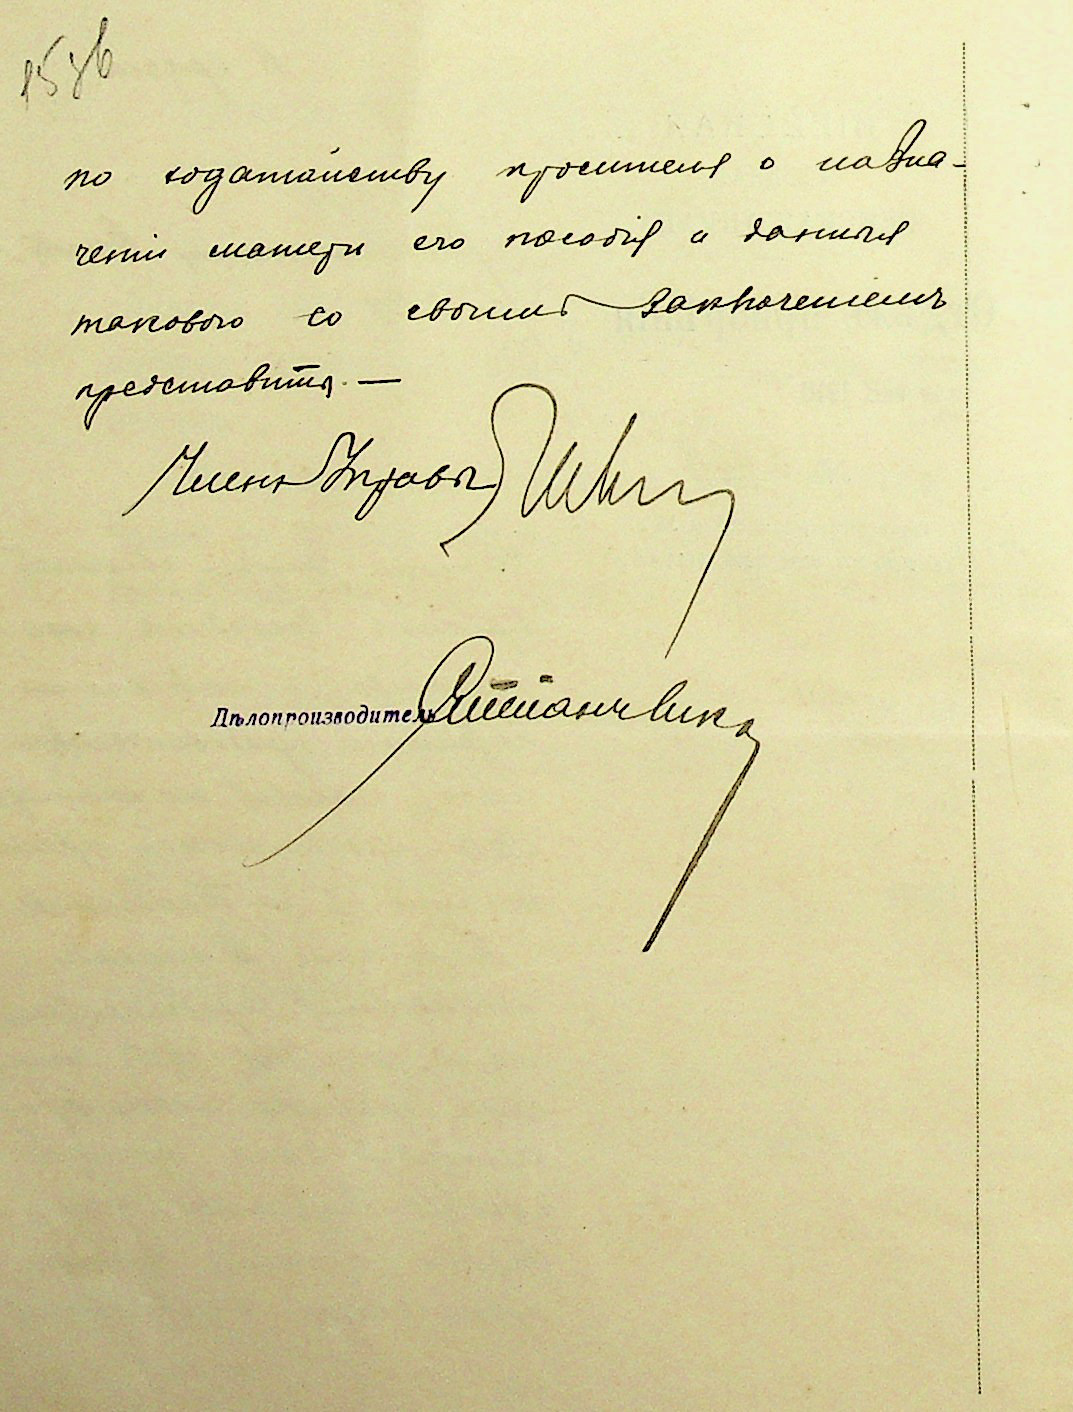 по ходатайству просителя о назна-
чении матери его пособія и данныя
такового со своимъ заключеніемъ
представить. —
Членъ Управы
Дѣлопроизводитель